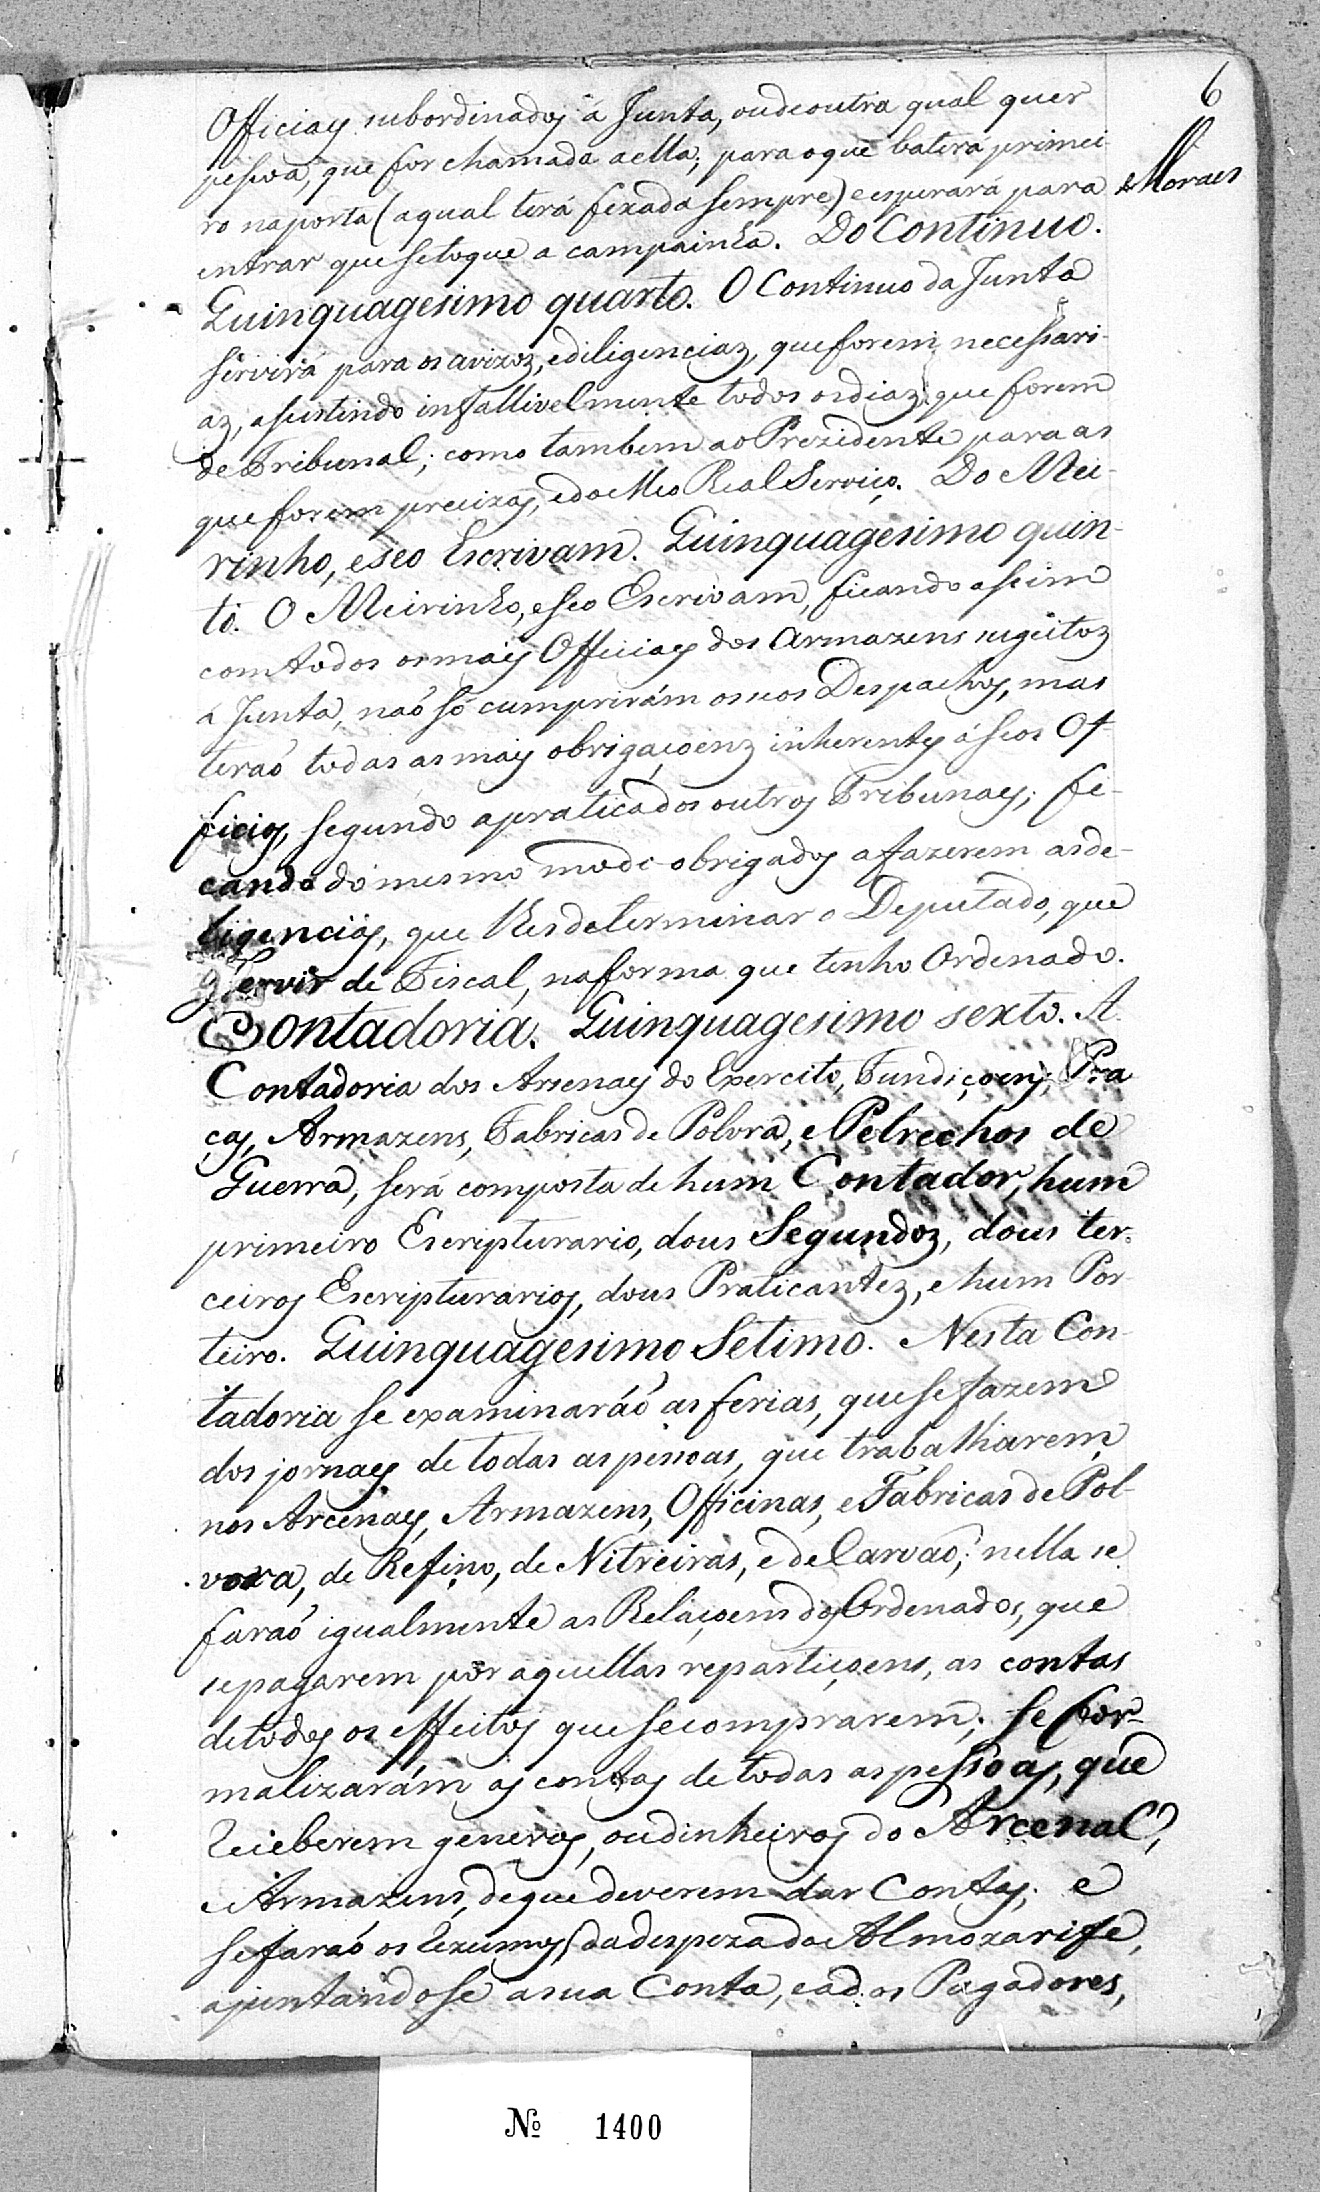 6
Moraes
Officiaes subordinados á Junta, ou de outra qual quer
pessoa, que for chamada a ella; para o que baterá primei-
ro na porta (a qual terá fexada sempre) e esperará para
entrar que se toque a campainha. Do Continuo.
Quinquagesimo quarto. O Continuo da Junta
servirá para os avizoz, e diligenciaz, que forem necessari-
az, assistindo infallivelmente todos os diaz, que forem
de Tribunal; como tambem ao Prezidente para as
que forem precizas, e do Meo Real Serviço. Do Mei-
rinho, e seo Escrivam. Quinquagesimo quin-
to. O Meirinho, e seo Escrivam, ficando assim
com todos os mais Officiaes dos Armazens sugeitoz
á Junta, naó só cumprirám os seos Despachos, mas
teraó todas as mais obrigaçoenz inherentes á seos Of-
ficios, segundo a pratica dos outros Tribunaes; fi-
cando do mesmo modo obrigados a fazerem as de-
ligencias, que lhes determinar o Deputado, que
servir de Fiscal, na forma que tenho Ordenado.
Contadoria. Quinquagesimo sexto. A
Contadoria dos Arsenaes do Exercito, Fundiçoens, Pra
ças, Armazens, Fabricas de Polvra, e Petrechos de
Guerra, será composta de hum Contador, hum
primeiro Escripturario, dous Segundoz, dous ter-
ceiros Escripturarios, dous Praticantez, e hum Por-
teiro. Quinquagesimo Setimo. Nesta Con-
tadoria se examinaráó as ferias, que se fazem
dos jornaes de todas as pessoas, que trabalharem
nos Arcenaes, Armazens, Officinas, e Fabricas de Pol-
vora, de Refino, de Nitreiras, e de Carvaó; nella se
faraó igualmente as Relaçoens dos Ordenados, que
se pagarem por aquellas repartiçoens, as contas
de todos os effeitos que se comprarem; se for-
malizarám as contas de todas as pessoas, que
receberem generos, ou dinheiros do Arcenal,
e Armazens, de que deverem dar Contas; e
se faraó os rezumos da despeza do Almoxarife,
ajuntandose a sua Conta, e a dos Pagadores,
Nº 1400